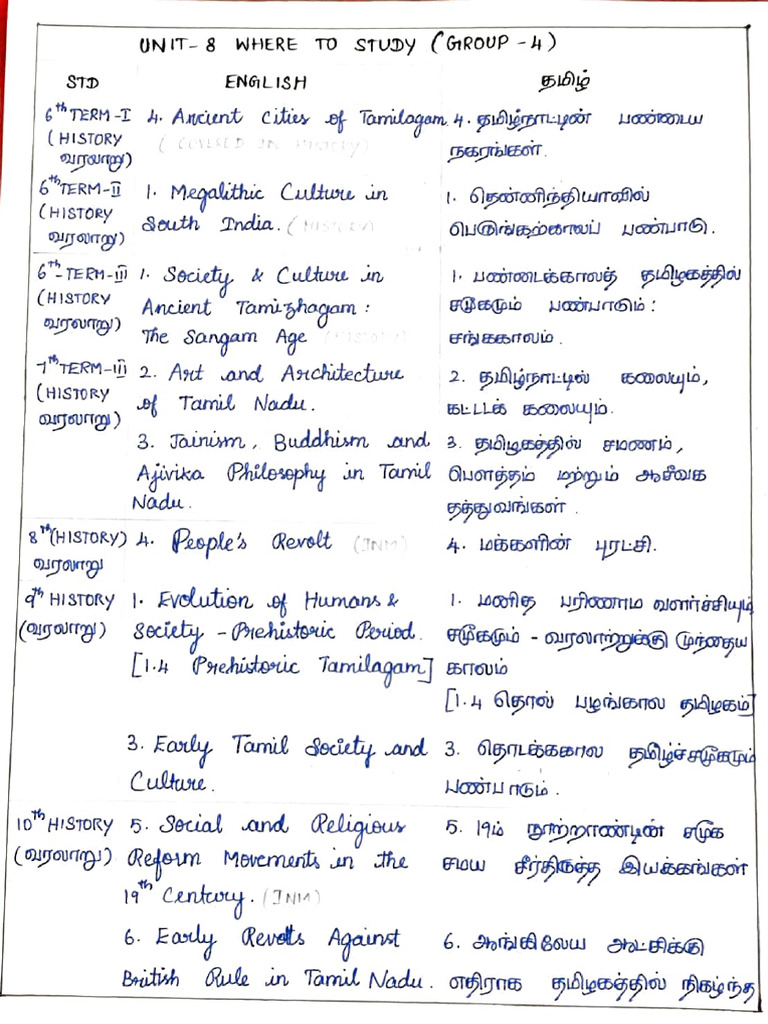 UNIT-8 WHERE TO STUDY (GROUP-4)
STD ENGLISH தமிழ்
6th TERM-I 4. Ancient Cities of Tamilagam 4. தமிழ்நாட்டின் பண்டைய
(HISTORY (COVERED IN HISTORY) நகரங்கள்.
வரலாறு)
6th TERM-II 1. Megalithic Culture in 1. தென்னிந்தியாவில்
(HISTORY South India. (HISTORY) பெருங்கற்காலப் பண்பாடு.
வரலாறு)
6th-TERM-III 1. Society & Culture in 1. பண்டைக்காலத் தமிழகத்தில்
(HISTORY Ancient Tamizhagam: சமூகமும் பண்பாடும்:
வரலாறு) The Sangam Age (HISTORY) சங்ககாலம்.
7th TERM-III 2. Art and Architecture 2. தமிழ்நாட்டில் கலையும்,
(HISTORY of Tamil Nadu. கட்டடக் கலையும்.
வரலாறு)
3. Jainism, Buddhism and 3. தமிழகத்தில் சமணம்,
Ajivika Philosophy in Tamil பௌத்தம் மற்றும் ஆசீவக
Nadu. தத்துவங்கள்.
8th (HISTORY) 4. People's Revolt (INM) 4. மக்களின் புரட்சி.
வரலாறு
9th HISTORY 1. Evolution of Humans & 1. மனித பரிணாம வளர்ச்சியும்
(வரலாறு) Society - Prehistoric Period. சமூகமும் - வரலாற்றுக்கு முந்தைய
[1.4 Prehistoric Tamilagam] காலம்
[1.4 தொல் பழங்கால தமிழகம்]
3. Early Tamil Society and 3. தொடக்ககால தமிழ்ச்சமூகமும்
Culture. பண்பாடும்.
10th HISTORY 5. Social and Religious 5. 19ம் நூற்றாண்டின் சமூக
(வரலாறு) Reform Movements in the சமய சீர்திருத்த இயக்கங்கள்
19th Century. (INM)
6. Early Revolts Against 6. ஆங்கிலேய ஆட்சிக்கு
British Rule in Tamil Nadu. எதிராக தமிழகத்தில் நிகழ்ந்த